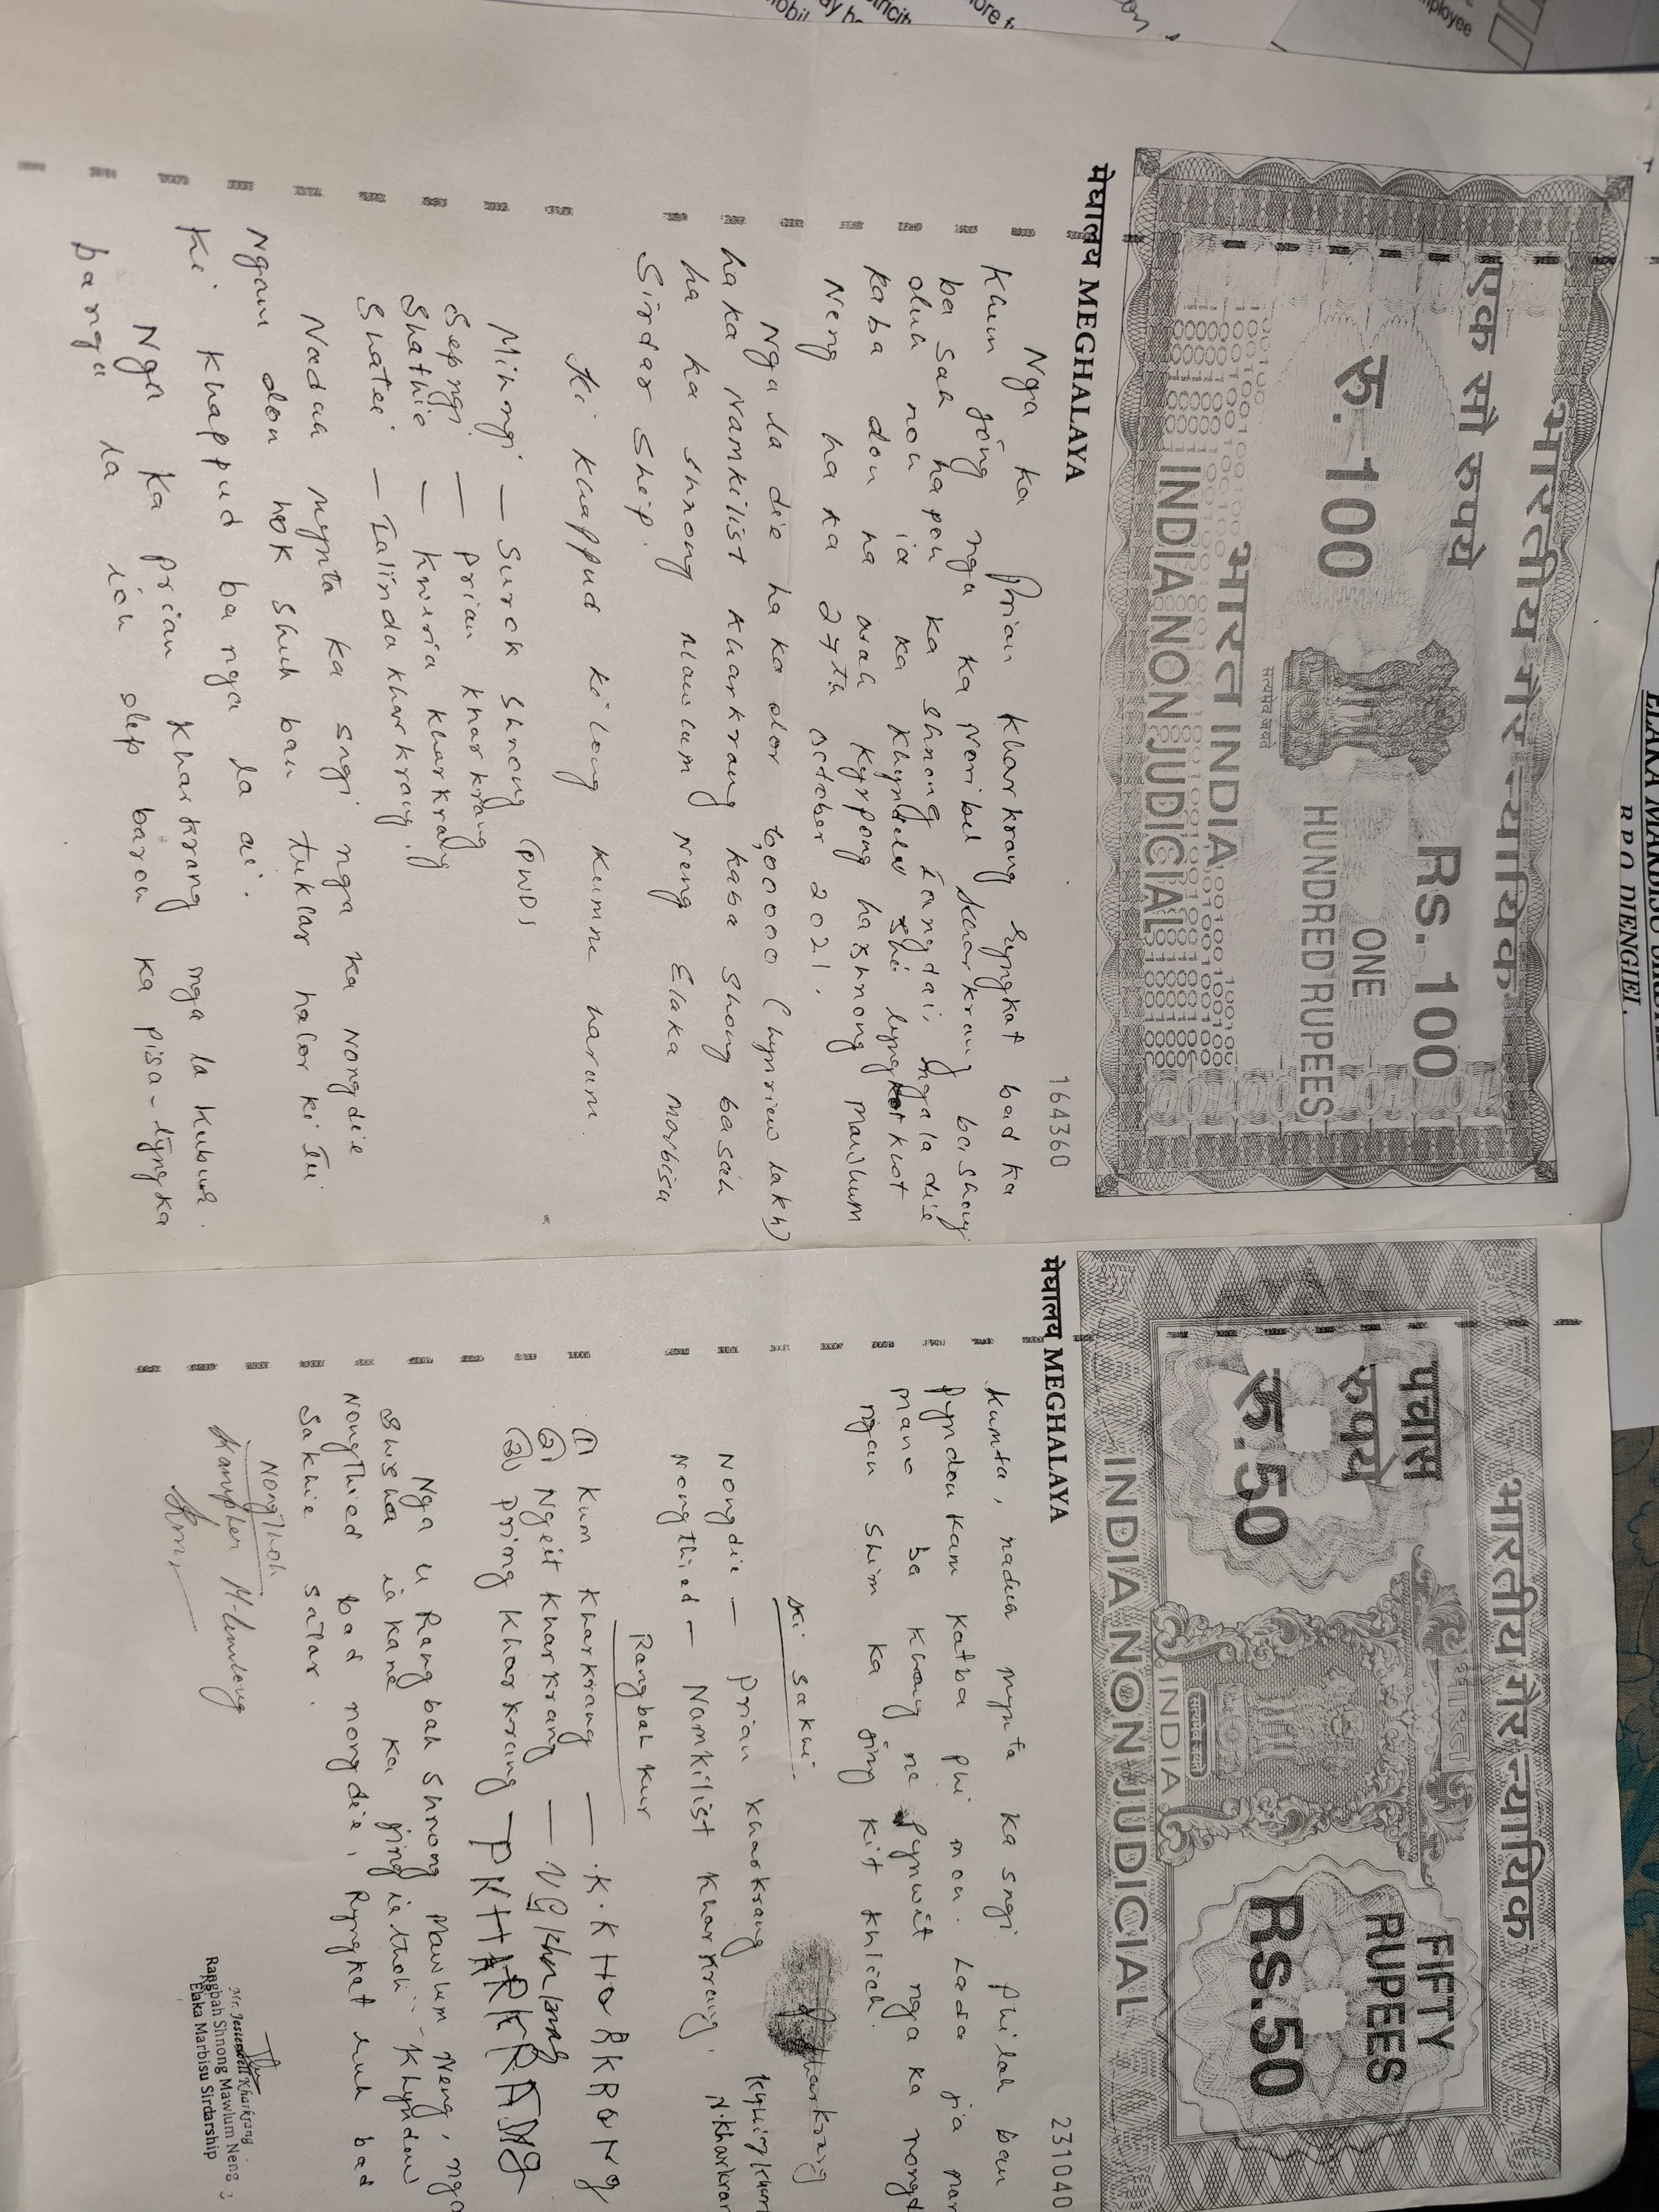 भारतीय गैर न्यायिक
एक सौ रुपये
रु. 100
Rs. 100
ONE
HUNDRED RUPEES
सत्यमेव जयते
भारत INDIA
INDIA NON JUDICIAL
मेघालय MEGHALAYA
164360
Nga ka Prian Kharkrang Ryngkat bad ka
Khun jong nga ka Noribel Kharkrang bashong
ba sah hapoh ka Shnong Iangdai, ngala die
duh noh ia ka Khyndew Shi lyngkot knot
kaba don na wah Kyrpong ha shnong Mawlum
Neng ha ka 27th October 2021.
Nga la die ha ka dor 6,00000 (hynriew lakh)
ha ka Namkilist Kharkrang kaba shong basah
ha ka shnong Mawlum Neng Elaka Marbisu
Sirdarship.
Ki Khappud ki long kumne harum.
Mihngi — Surok Shnong (PWD)
Sepngi — Prian Kharkrang
Shathie — Kweria Kharkrang
Shatei — Ialinda Kharkrang.
Naduh mynta ka sngi nga ka Nongdie
Ngam don hok shuh ban tuklar halor ki Tei
Ki Khappud ba nga la ai.
Nga ka Prian Kharkrang nga la kubur.
bangu la ioh dep baroh ka pisa-tyngka
भारतीय गैर न्यायिक
पचास
रुपये
रु.50
FIFTY
RUPEES
Rs.50
भारत
सत्यमेव जयते
INDIA
INDIA NON JUDICIAL
मेघालय MEGHALAYA
231040
Kumta, naduh mynta ka sngi phi lah ban
Pyndonkam katba phi mon. Lada jia
mano ba khang ne Pynwit nga ka
ngan shim ka jing kit khlieh.
Ki sakhi
Nongdie — Prian Kharkrang
P Kharkrang
Nongthied — Namkilist Kharkrang.
Rangbah Kur
① Kum Kharkrang — K.KHARKRANG
② Ngeit Kharkrang —
③ Pring Kharkrang — PKHARKRANG
Nga u Rangbah Shnong Mawlum Neng, nga
shisha ia kane ka jingiathoh-Khyndew
Nongthied bad nongdie, Ryngkat ruh bad
Sakhie salar.
Nongthoh
Mr. Jestenwell Kharkrang
Rangbah Shnong Mawlum Neng
Elaka Marbisu Sirdarship
ELAKA MARBISU
B.P.O. DIENGIEI.